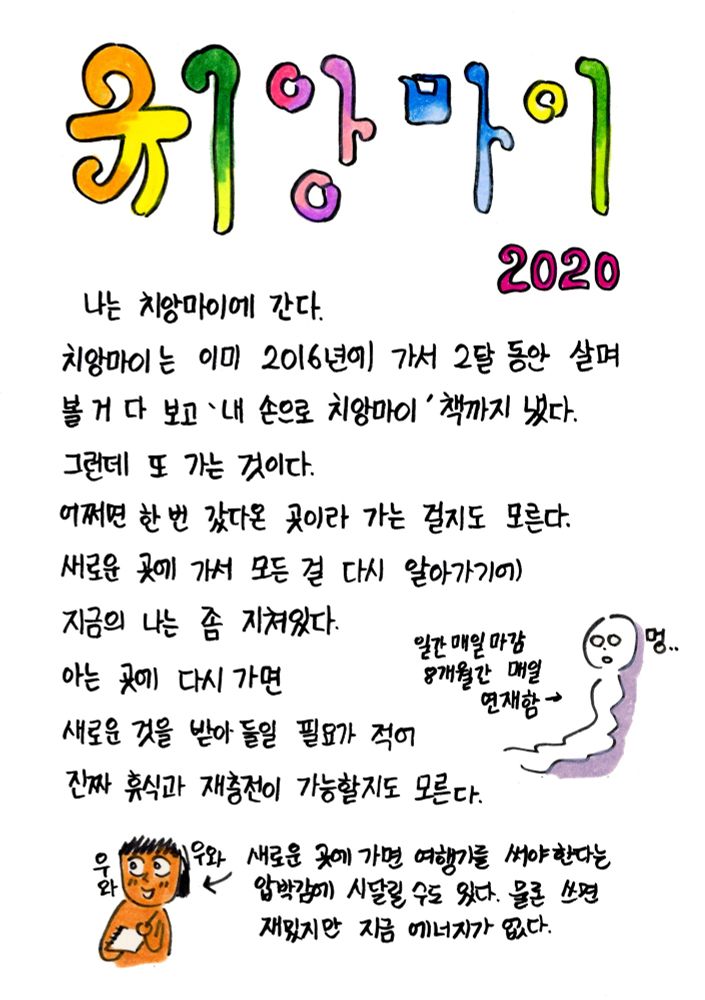 치앙마이
2020
나는 치앙마이에 간다.
치앙마이는 이미 2016년에 가서 2달 동안 살며
볼 거 다 보고 '내 손으로 치앙마이' 책까지 냈다.
그런데 또 가는 것이다.
어쩌면 한 번 갔다온 곳이라 가는 걸지도 모른다.
새로운 곳에 가서 모든 걸 다시 알아가기에
지금의 나는 좀 지쳐있다.
아는 곳에 다시 가면
새로운 것을 받아들일 필요가 적어
진짜 휴식과 재충전이 가능할지도 모른다.
일간 매일 마감
8개월간 매일
연재함→
멍..
우와
우와
새로운 곳에 가면 여행기를 써야한다는
압박감에 시달릴 수도 있다. 물론 쓰면
재밌지만 지금 에너지가 없다.